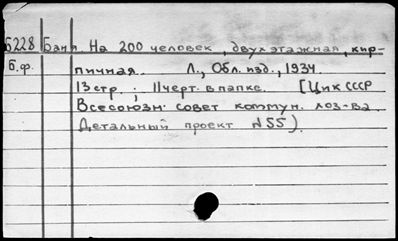 Б228 Баня. На 200 человек, двухэтажная, кир-
Б.ф. пичная. Л., Обл. изд., 1934.
13 стр.; 11 черт. в папке. [Цик СССР
Всесоюзн. совет коммун. хоз-ва
Детальный проект №55).